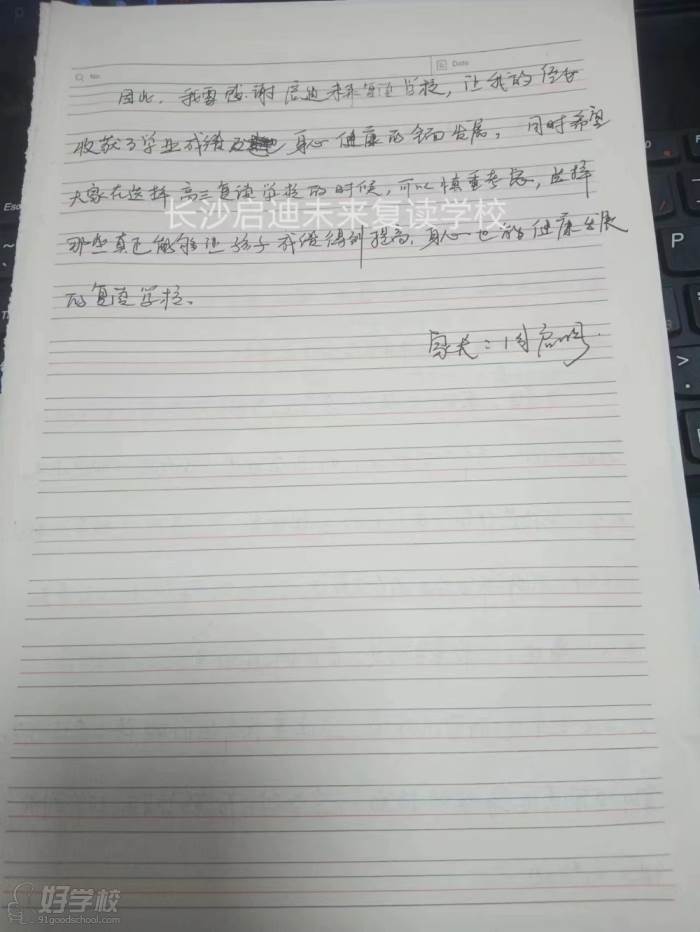 No.
Date
因此,我要感谢启迪未来复读学校,让我的
收获了学业成绩及身心健康的全面发展,同时希望
大家在选择高三复读学校的时候,可以慎重考虑,选择
长沙启迪未来复读学校
那些真正能够让孩子成绩得到提高,身心也能健康发展
的复读学校。
家长:周启明
Esc
P
好学校
91goodschool.com